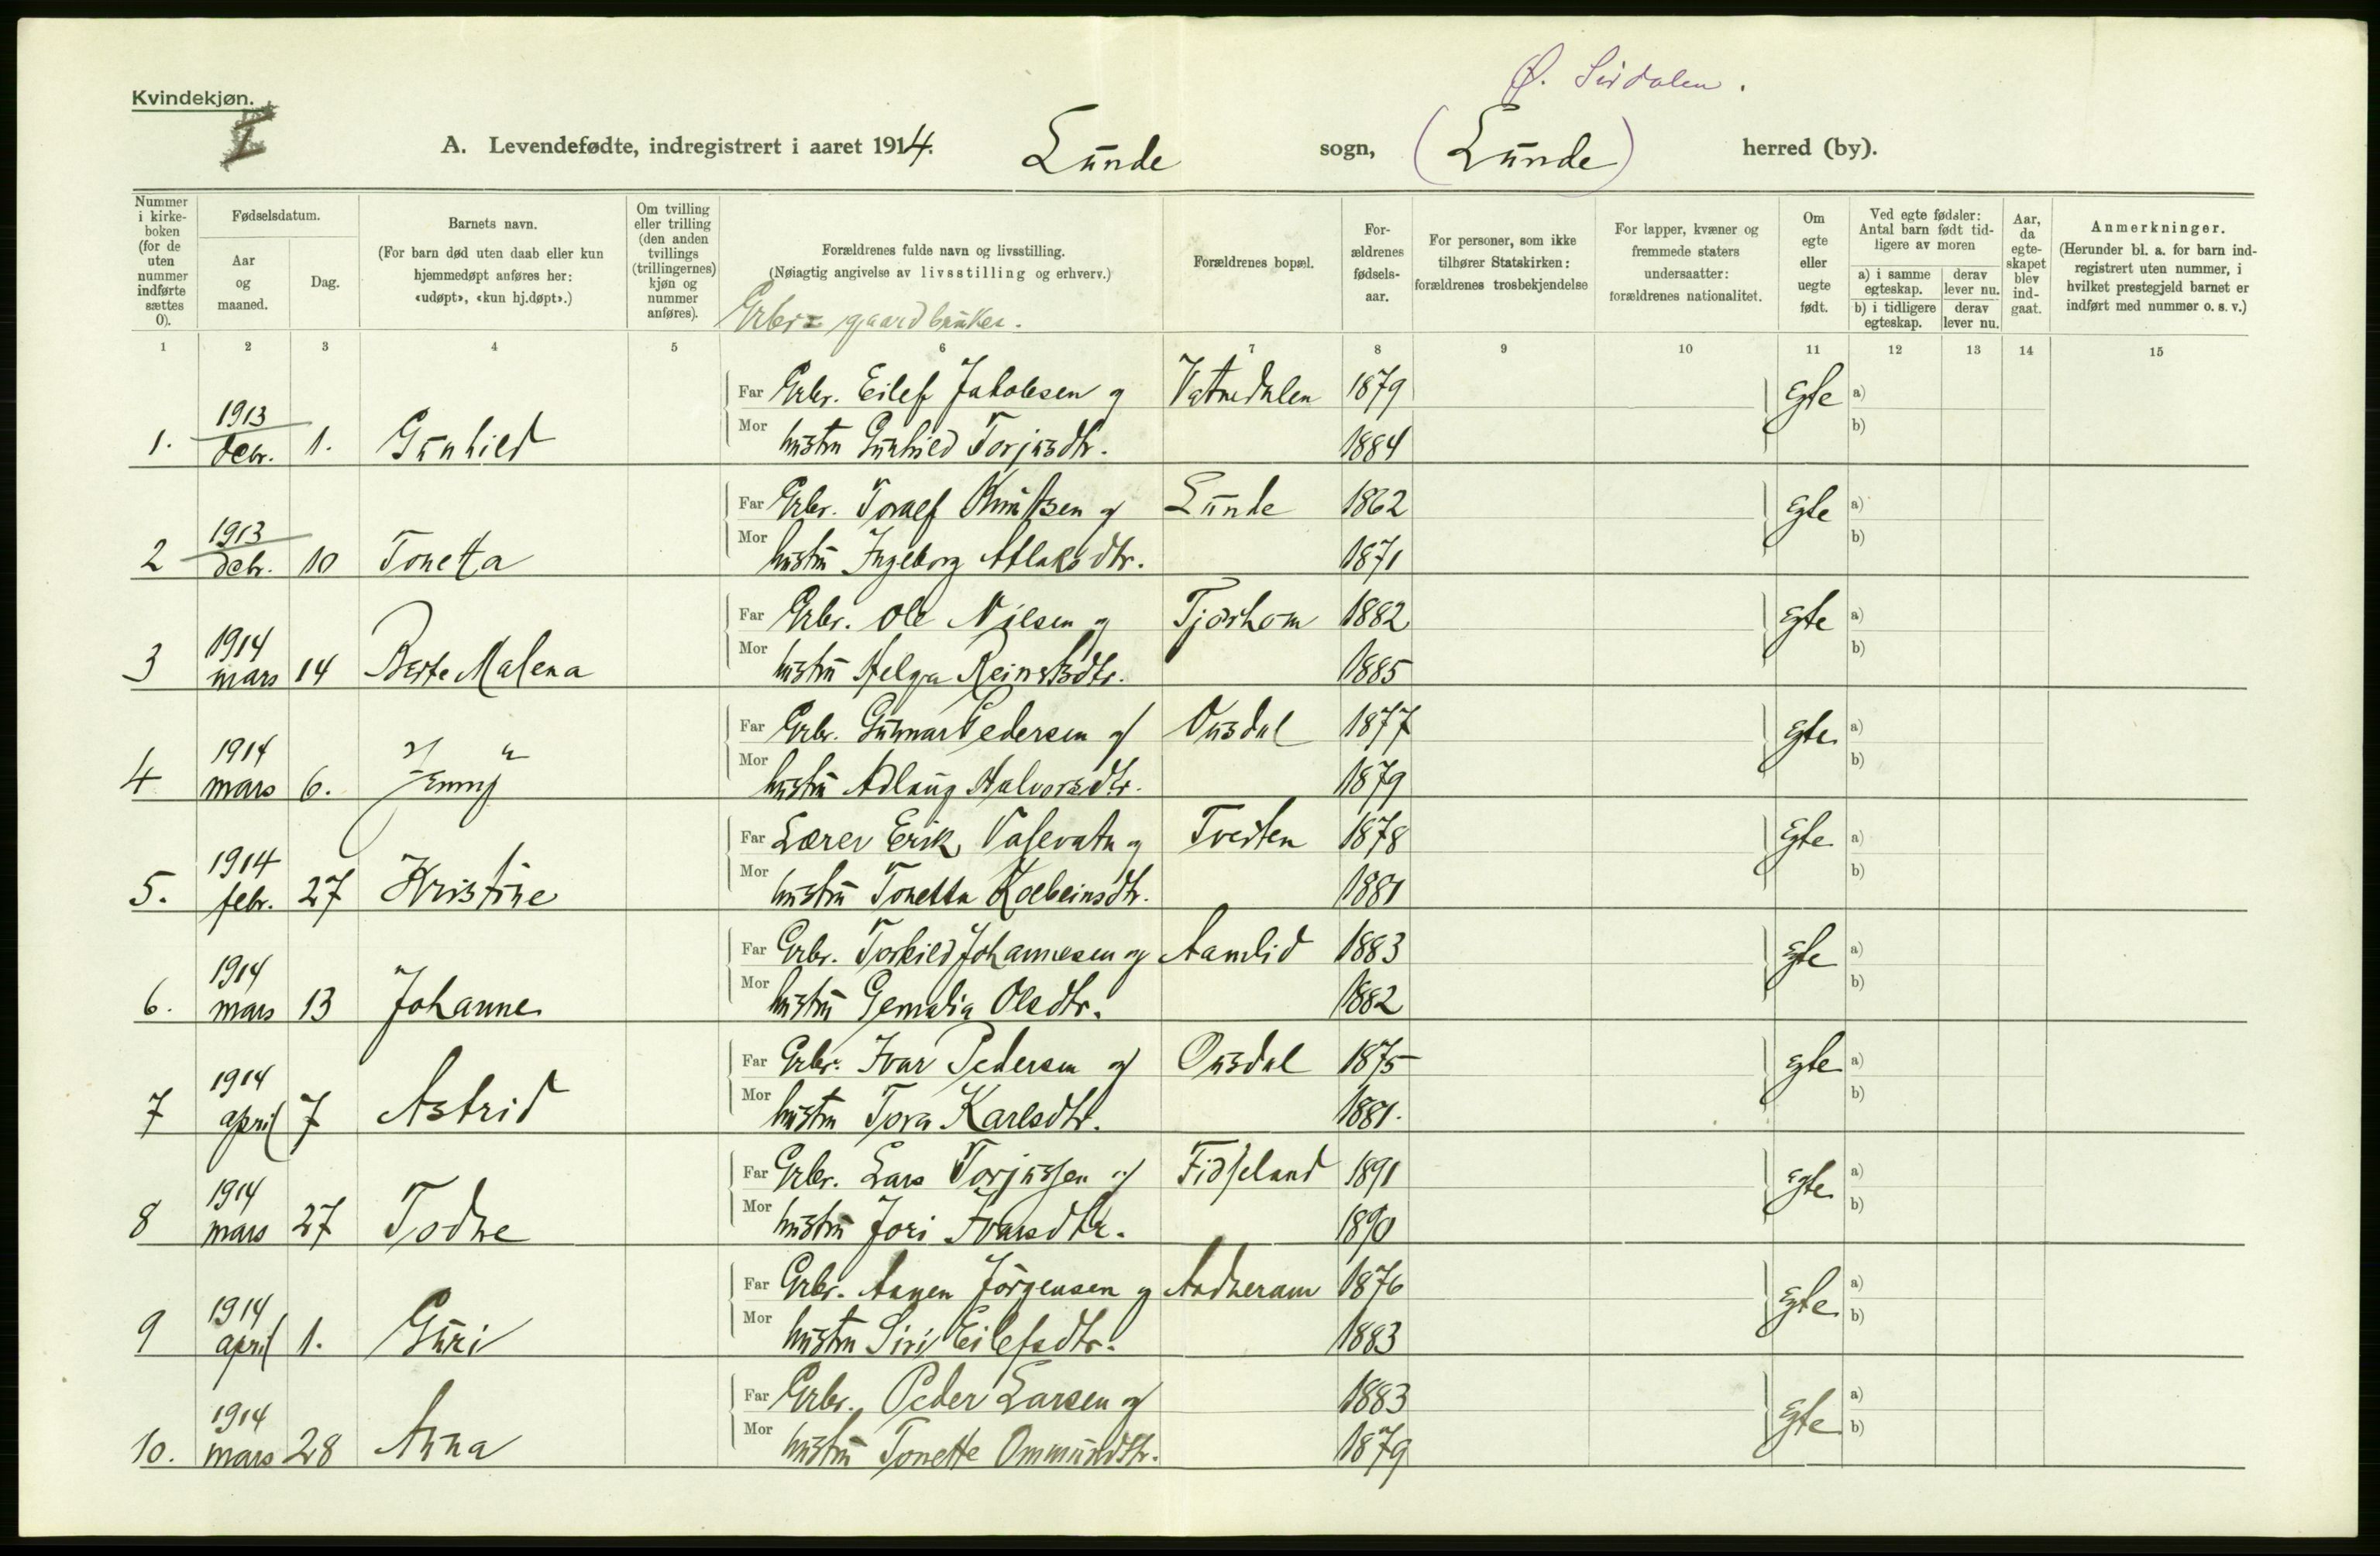 Ø. Sirdalen.
Kvindekjøn.
I
A. Levendefødte, indregistrert i aaret 1914. Lunde sogn, (Lunde) herred (by).
Nummer i kirke-boken (for de uten nummer indførte sættes 0).
Fødselsdatum.
Aar og maaned.
Dag.
Barnets navn.
(For barn død uten daab eller kun hjemmedøpt anføres her: «udøpt», «kun hj.døpt».)
Om tvilling eller trilling (den anden tvillings (trillingernes) kjøn og nummer anføres).
Forældrenes fulde navn og livsstilling.
(Nøiagtig angivelse av livsstilling og erhverv.)
Grbr = gaardbruker.
Forældrenes bopæl.
For-ældrenes fødsels-aar.
For personer, som ikke tilhører Statskirken: forældrenes trosbekjendelse
For lapper, kvæner og fremmede staters undersaatter: forældrenes nationalitet.
Om egte eller uegte født.
Ved egte fødsler: Antal barn født tid-ligere av moren
a) i samme egteskap.
derav lever nu.
b) i tidligere egteskap.
derav lever nu.
Aar, da egte-skapet blev ind-gaat.
Anmerkninger.
(Herunder bl. a. for barn ind-registrert uten nummer, i hvilket prestegjeld barnet er indført med nummer o. s. v.)
1 2 3 4 5 6 7 8 9 10 11 12 13 14 15
Far Grbr. Eilef Jakobsen og Vatnedalen 1879 Egte a)
1. 1913 debr. 1. Gunhild
Mor hustru Gunhild Torjusdtr. 1884 b)
Far Grbr. Toralf Knutsen og Lunde 1862 Egte a)
2 1913 debr. 10 Tonetta
Mor hustru Ingeborg Atlaksdtr. 1871 b)
Far Grbr. Ole Nilsen og Tjørhom 1882 Egte a)
3 1914 mars 14 Berte Malena
Mor hustru Helga Reinertsdtr. 1885 b)
Far Grbr. Gunnar Pedersen og Ousdal 1877 Egte a)
4 1914 mars 6. Jenny
Mor hustru Adlaug Halvorsdtr. 1879 b)
Far Lærer Erik Valevatn og Tveiten 1878 Egte a)
5. 1914 febr. 27 Kristine
Mor hustru Tonetta Kolbeinsdtr. 1881 b)
Far Grbr. Torkild Johannesen og Aamlid 1883 Egte a)
6. 1914 mars 13 Johanne
Mor hustru Gemalia Olsdtr. 1882 b)
Far Grbr. Ivar Pedersen og Ousdal 1875 Egte a)
7 1914 april 7 Astrid
Mor hustru Tora Karlsdtr. 1881. b)
Far Grbr. Lars Torjussen og Fidjeland 1891 Egte a)
8 1914 mars 27 Todne
Mor hustru Jori Ivarsdtr. 1890 b)
Far Grbr. Aanen Jörgensen og Aadneram 1876 Egte a)
9 1914 april 1. Guri
Mor hustru Siri Eilefsdtr. 1883 b)
Far Grbr. Peder Larsen og 1883 Egte a)
10. 1914 mars 28 Anna
Mor hustru Tonette Ommundsdtr. 1879 b)